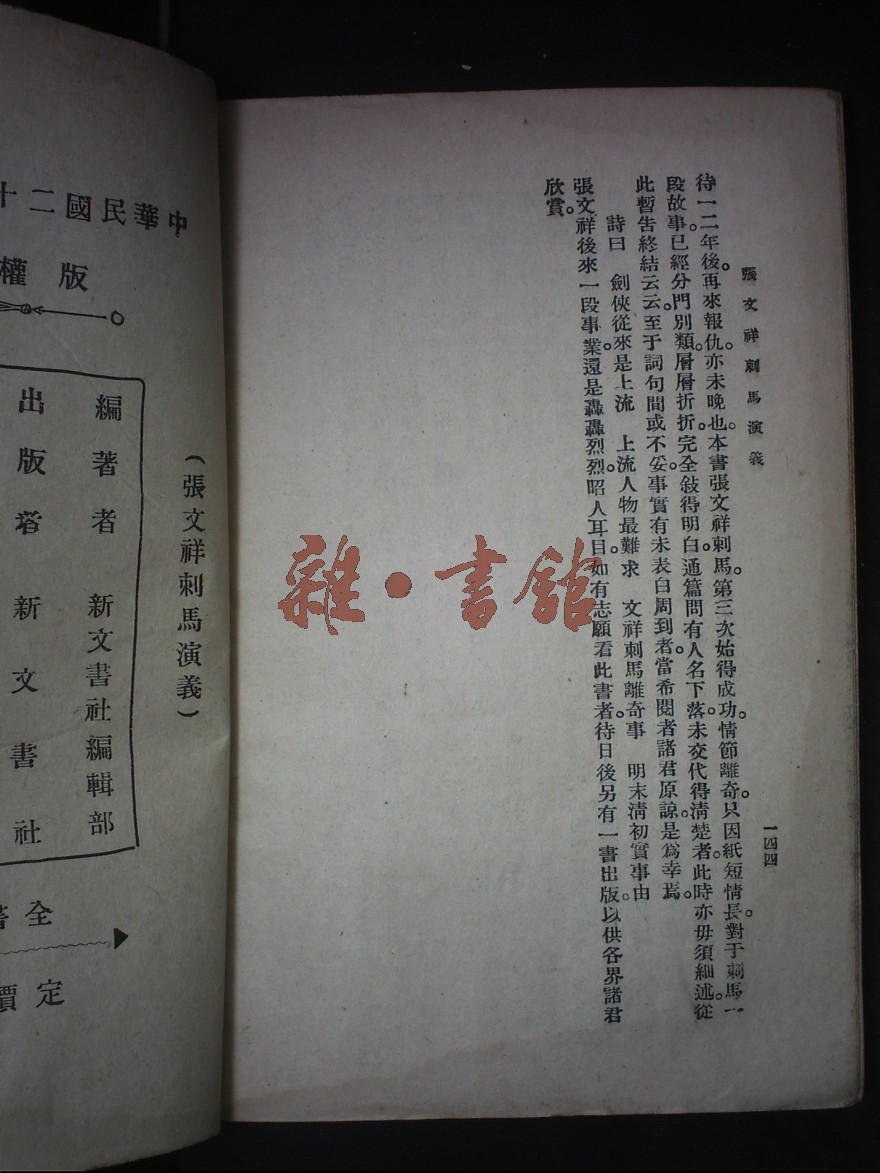 張文祥刺馬演義
一四四
待一二年後。再來報仇。亦未晚也。本書張文祥刺馬。第三次始得成功。情節離奇。只因紙短情長。對于刺馬一
段故事。已經分門別類。層層折折。完全敍得明白。通篇問有人名下落。未交代得清楚者。此時亦毋須細述。從
此暫告終結云云。至于詞句間或不妥。事實有未表白周到者。當希閱者諸君原諒。是爲幸焉。
詩曰　劍俠從來是上流　上流人物最難求　文祥刺馬離奇事　明末淸初實事由
張文祥後來一段事業。還是轟轟烈烈。昭人耳目。如有志願看此書者。待日後另有一書出版。以供各界諸君
欣賞。
中華民國二十
版權
(張文祥刺馬演義)
編著者　新文書社編輯部
出版者　新文書社
全書
定價
雜·書館